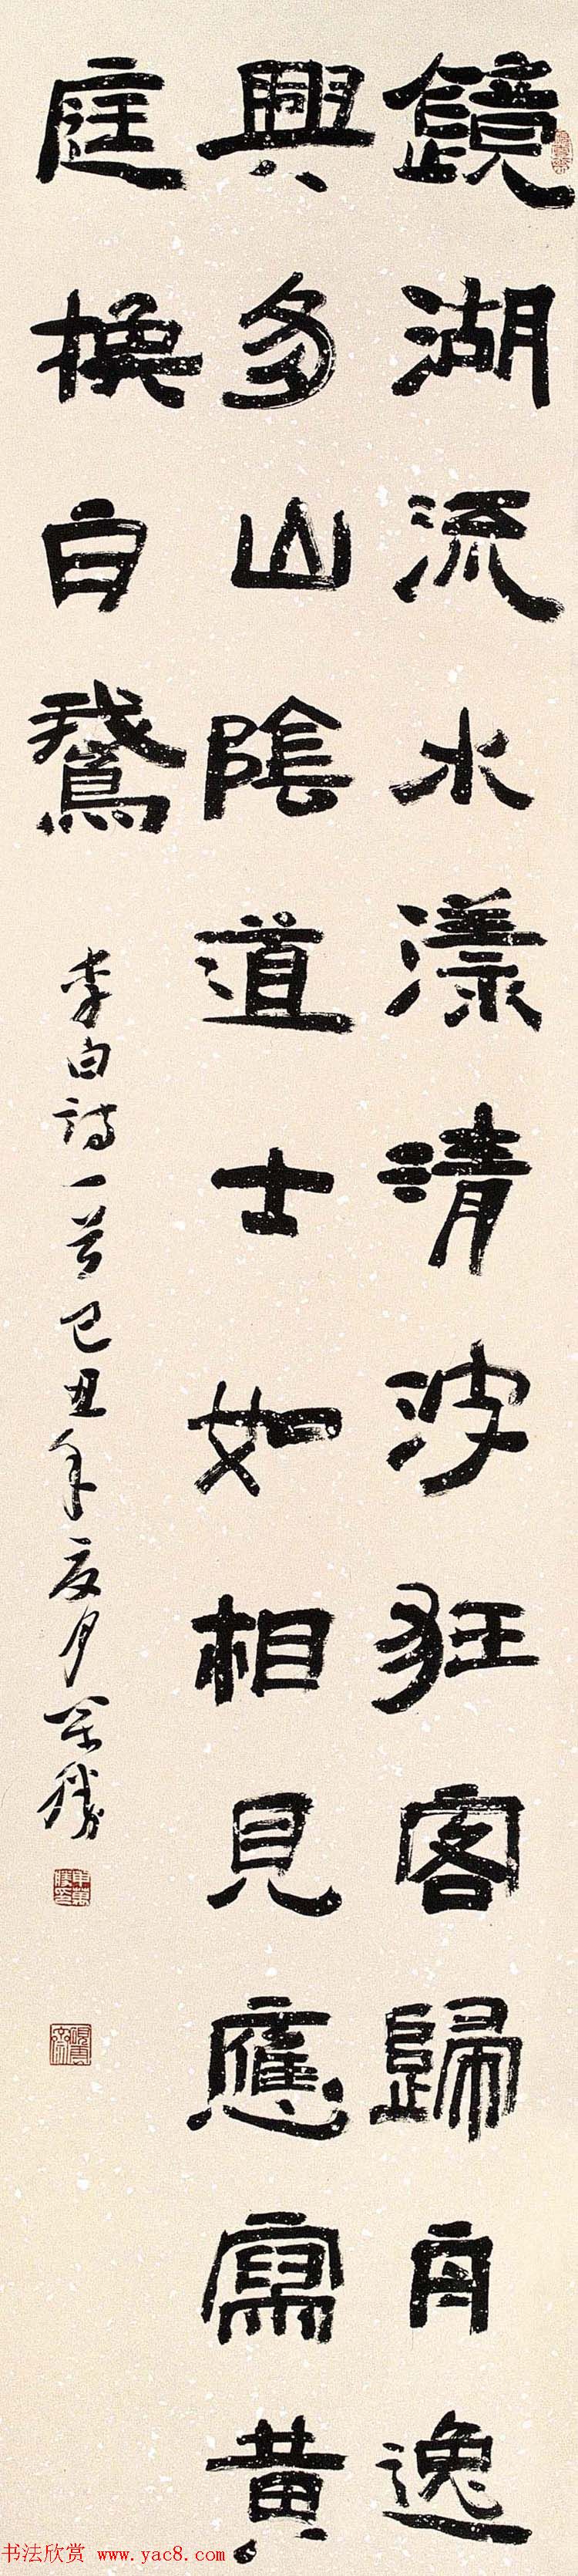 鏡湖流水漾清波狂客歸舟逸
興多山陰道士如相見應寫黃
庭換白鵝
李白詩一首己丑年夏月
书法欣赏 www.yac8.com